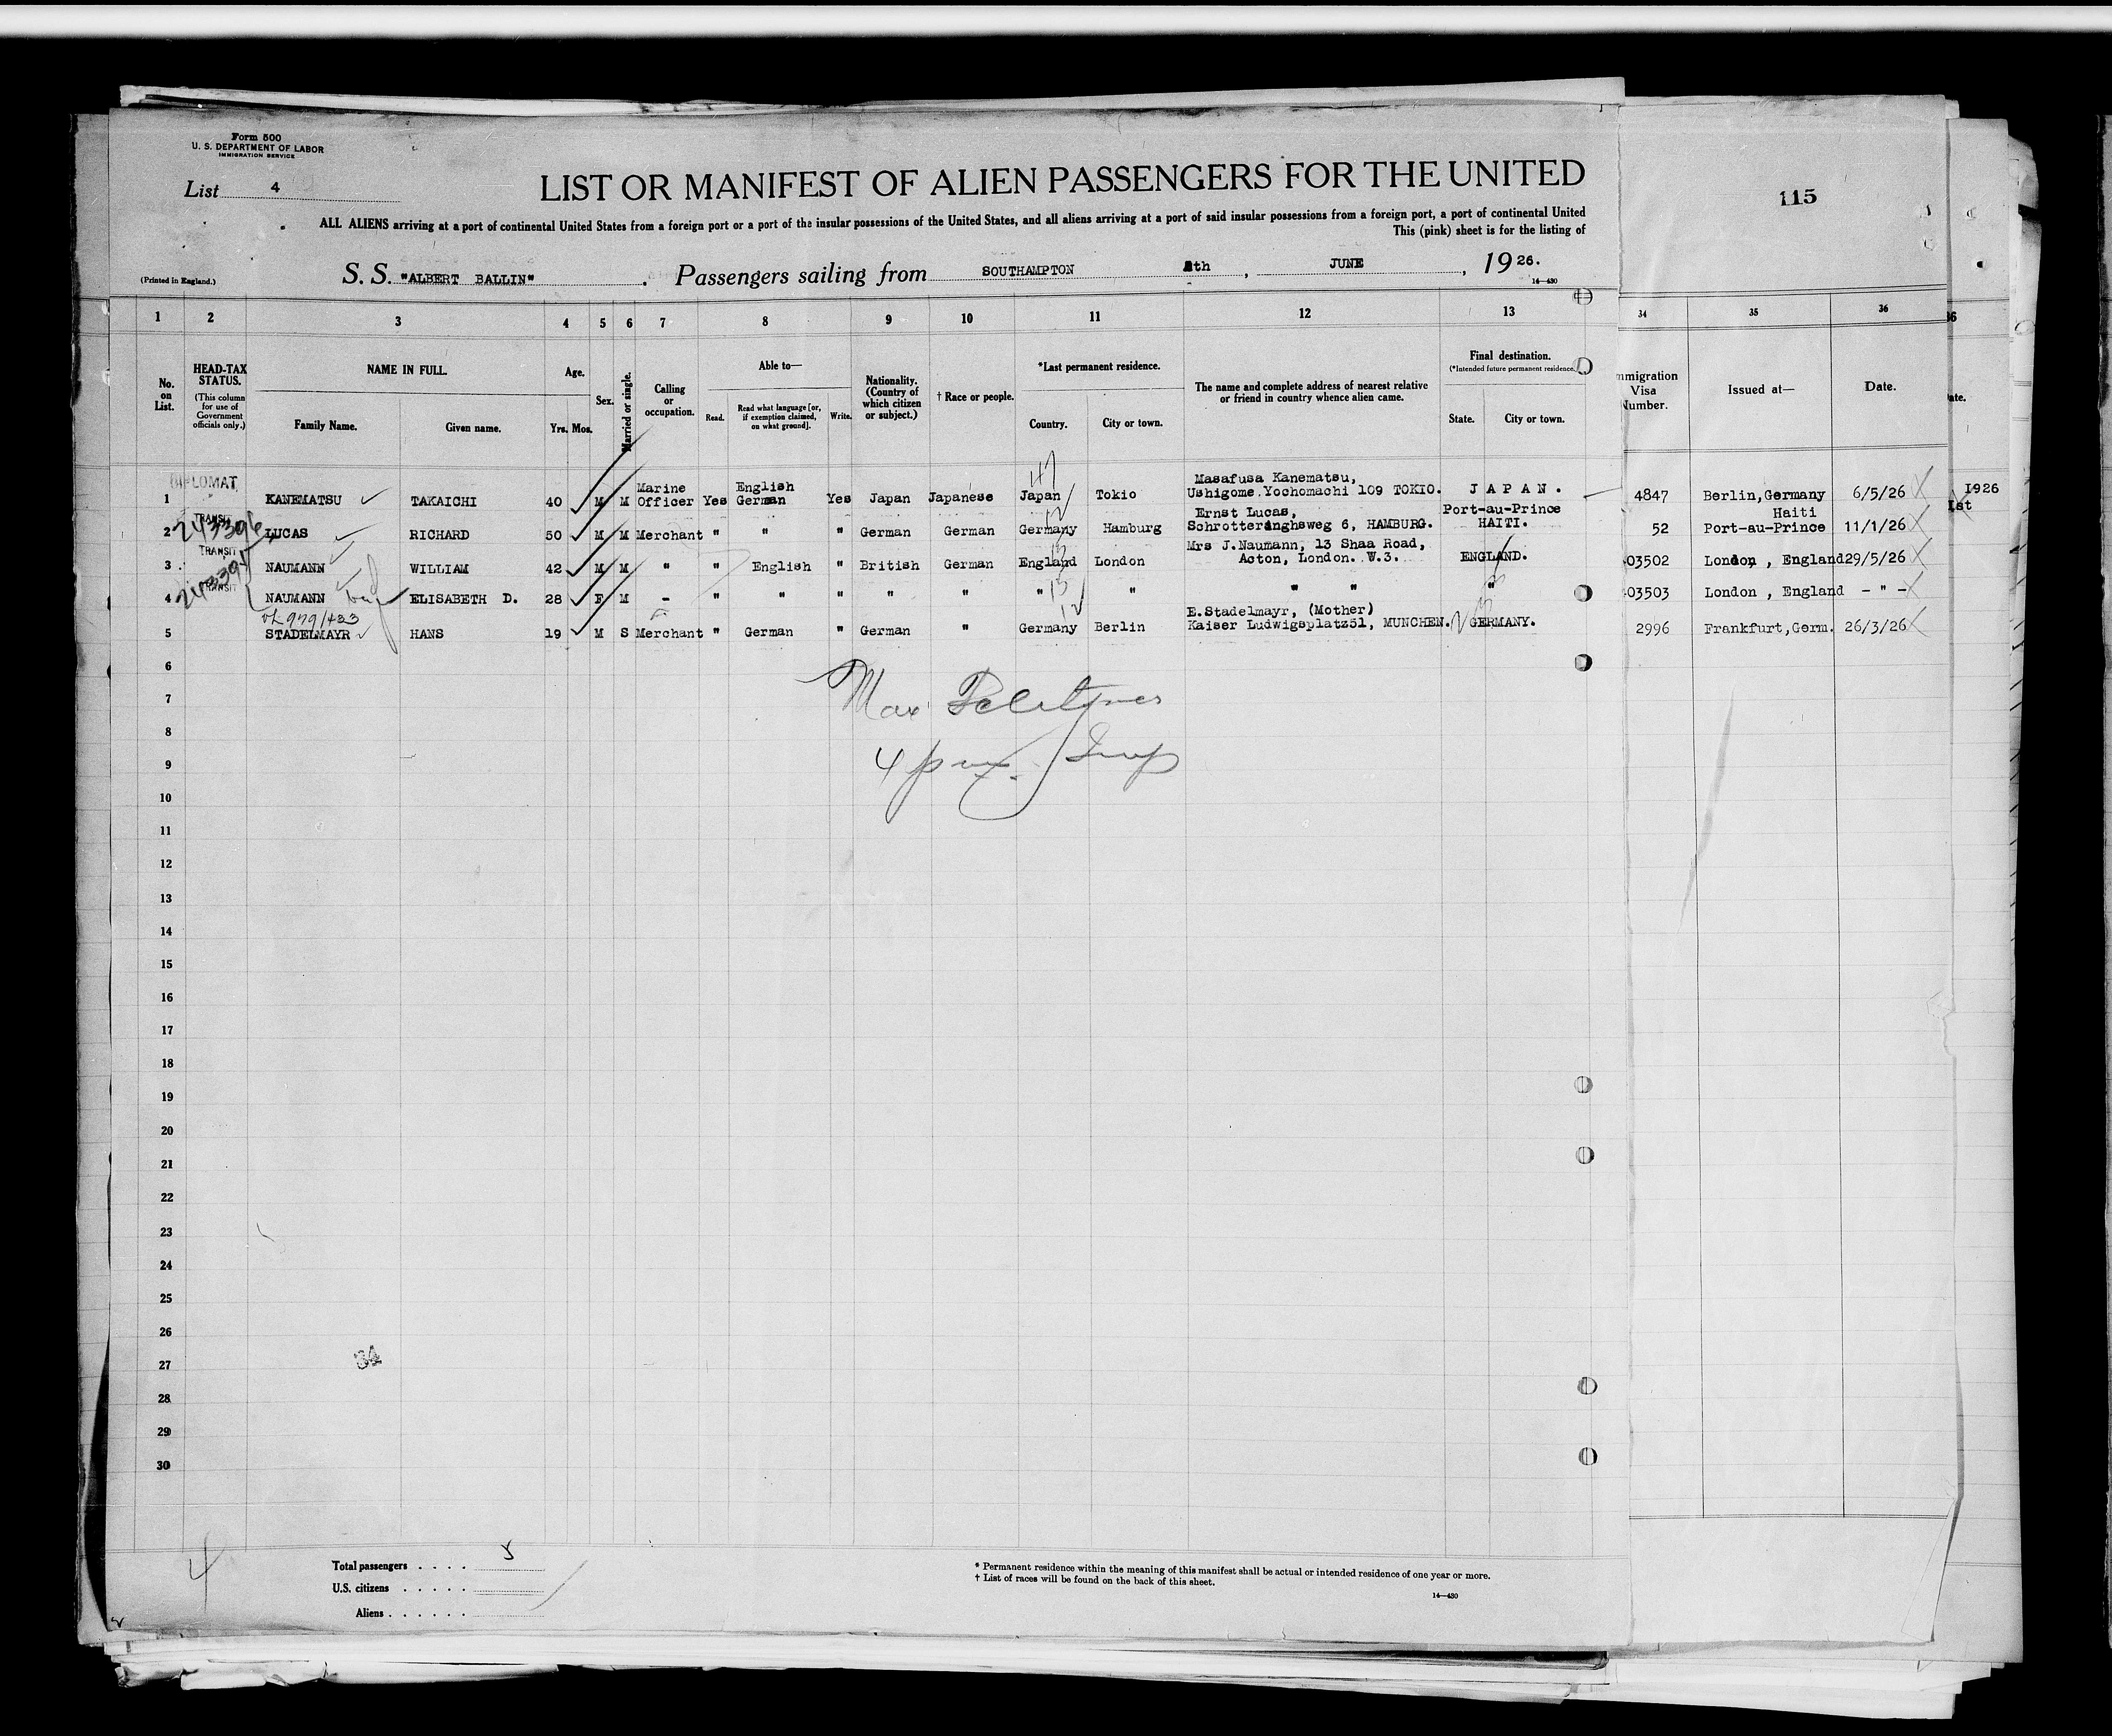 Form 500
U. S. DEPARTMENT OF LABOR
IMMIGRATION SERVICE
List 4
LIST OR MANIFEST OF ALIEN PASSENGERS FOR THE UNITED
115
ALL ALIENS arriving at a port of continental United States from a foreign port or a port of the insular possessions of the United States, and all aliens arriving at a port of said insular possessions from a foreign port, a port of continental United
This (pink) sheet is for the listing of
(Printed in England.)
S. S. "ALBERT BALLIN" . Passengers sailing from SOUTHAMPTON th , JUNE , 19 26.
14—430
1 2 3 4 5 6 7 8 9 10 11 12 13 34 35 36 36
No. on List.
HEAD-TAX STATUS.
(This column for use of Government officials only.)
NAME IN FULL.
Family Name. Given name.
Age.
Yrs. Mos.
Sex.
Married or single.
Calling or occupation.
Able to—
Read. Read what language [or, if exemption claimed, on what ground]. Write.
Nationality. (Country of which citizen or subject.)
† Race or people.
*Last permanent residence.
Country. City or town.
The name and complete address of nearest relative or friend in country whence alien came.
Final destination.
(*Intended future permanent residence.)
State. City or town.
mmigration Visa Number.
Issued at—
Date.
ate.
DIPLOMAT
47
1 KANEMATSU TAKAICHI 40 M M Marine Officer Yes English German Yes Japan Japanese Japan Tokio Masafusa Kanematsu, Ushigome Yochomachi 109 TOKIO. J A P A N . 4847 Berlin,Germany 6/5/26 1926
1st
TRANSIT
243396
12
2 LUCAS RICHARD 50 M M Merchant " " " German German Germany Hamburg Ernst Lucas, Schrotteringhsweg 6, HAMBURG. Port-au-Prince HAITI. 52 Port-au-Prince Haiti 11/1/26
TRANSIT
13
3 NAUMANN WILLIAM 42 M M " " English " British German England London Mrs J.Naumann, 13 Shaa Road, Acton, London. W.3. ENGLAND. 03502 London , England 29/5/26
TRANSIT
13
4 NAUMANN ELISABETH D. 28 F M - " " " " " " " " " " 03503 London , England - " -
979/433
12
5 STADELMAYR HANS 19 M S Merchant " German " German " Germany Berlin E.Stadelmayr, (Mother) Kaiser Ludwigsplatz51, MUNCHEN. GERMANY. 2996 Frankfurt,Germ. 26/3/26
6
7
Max
8
9
4 pm. Insp
10
11
12
13
14
15
16
17
18
19
20
21
22
23
24
25
26
27
34
28
29
30
4
Total passengers . . . . 5
U.S. citizens . . . . .
Aliens . . . . . .
* Permanent residence within the meaning of this manifest shall be actual or intended residence of one year or more.
† List of races will be found on the back of this sheet.
14—430